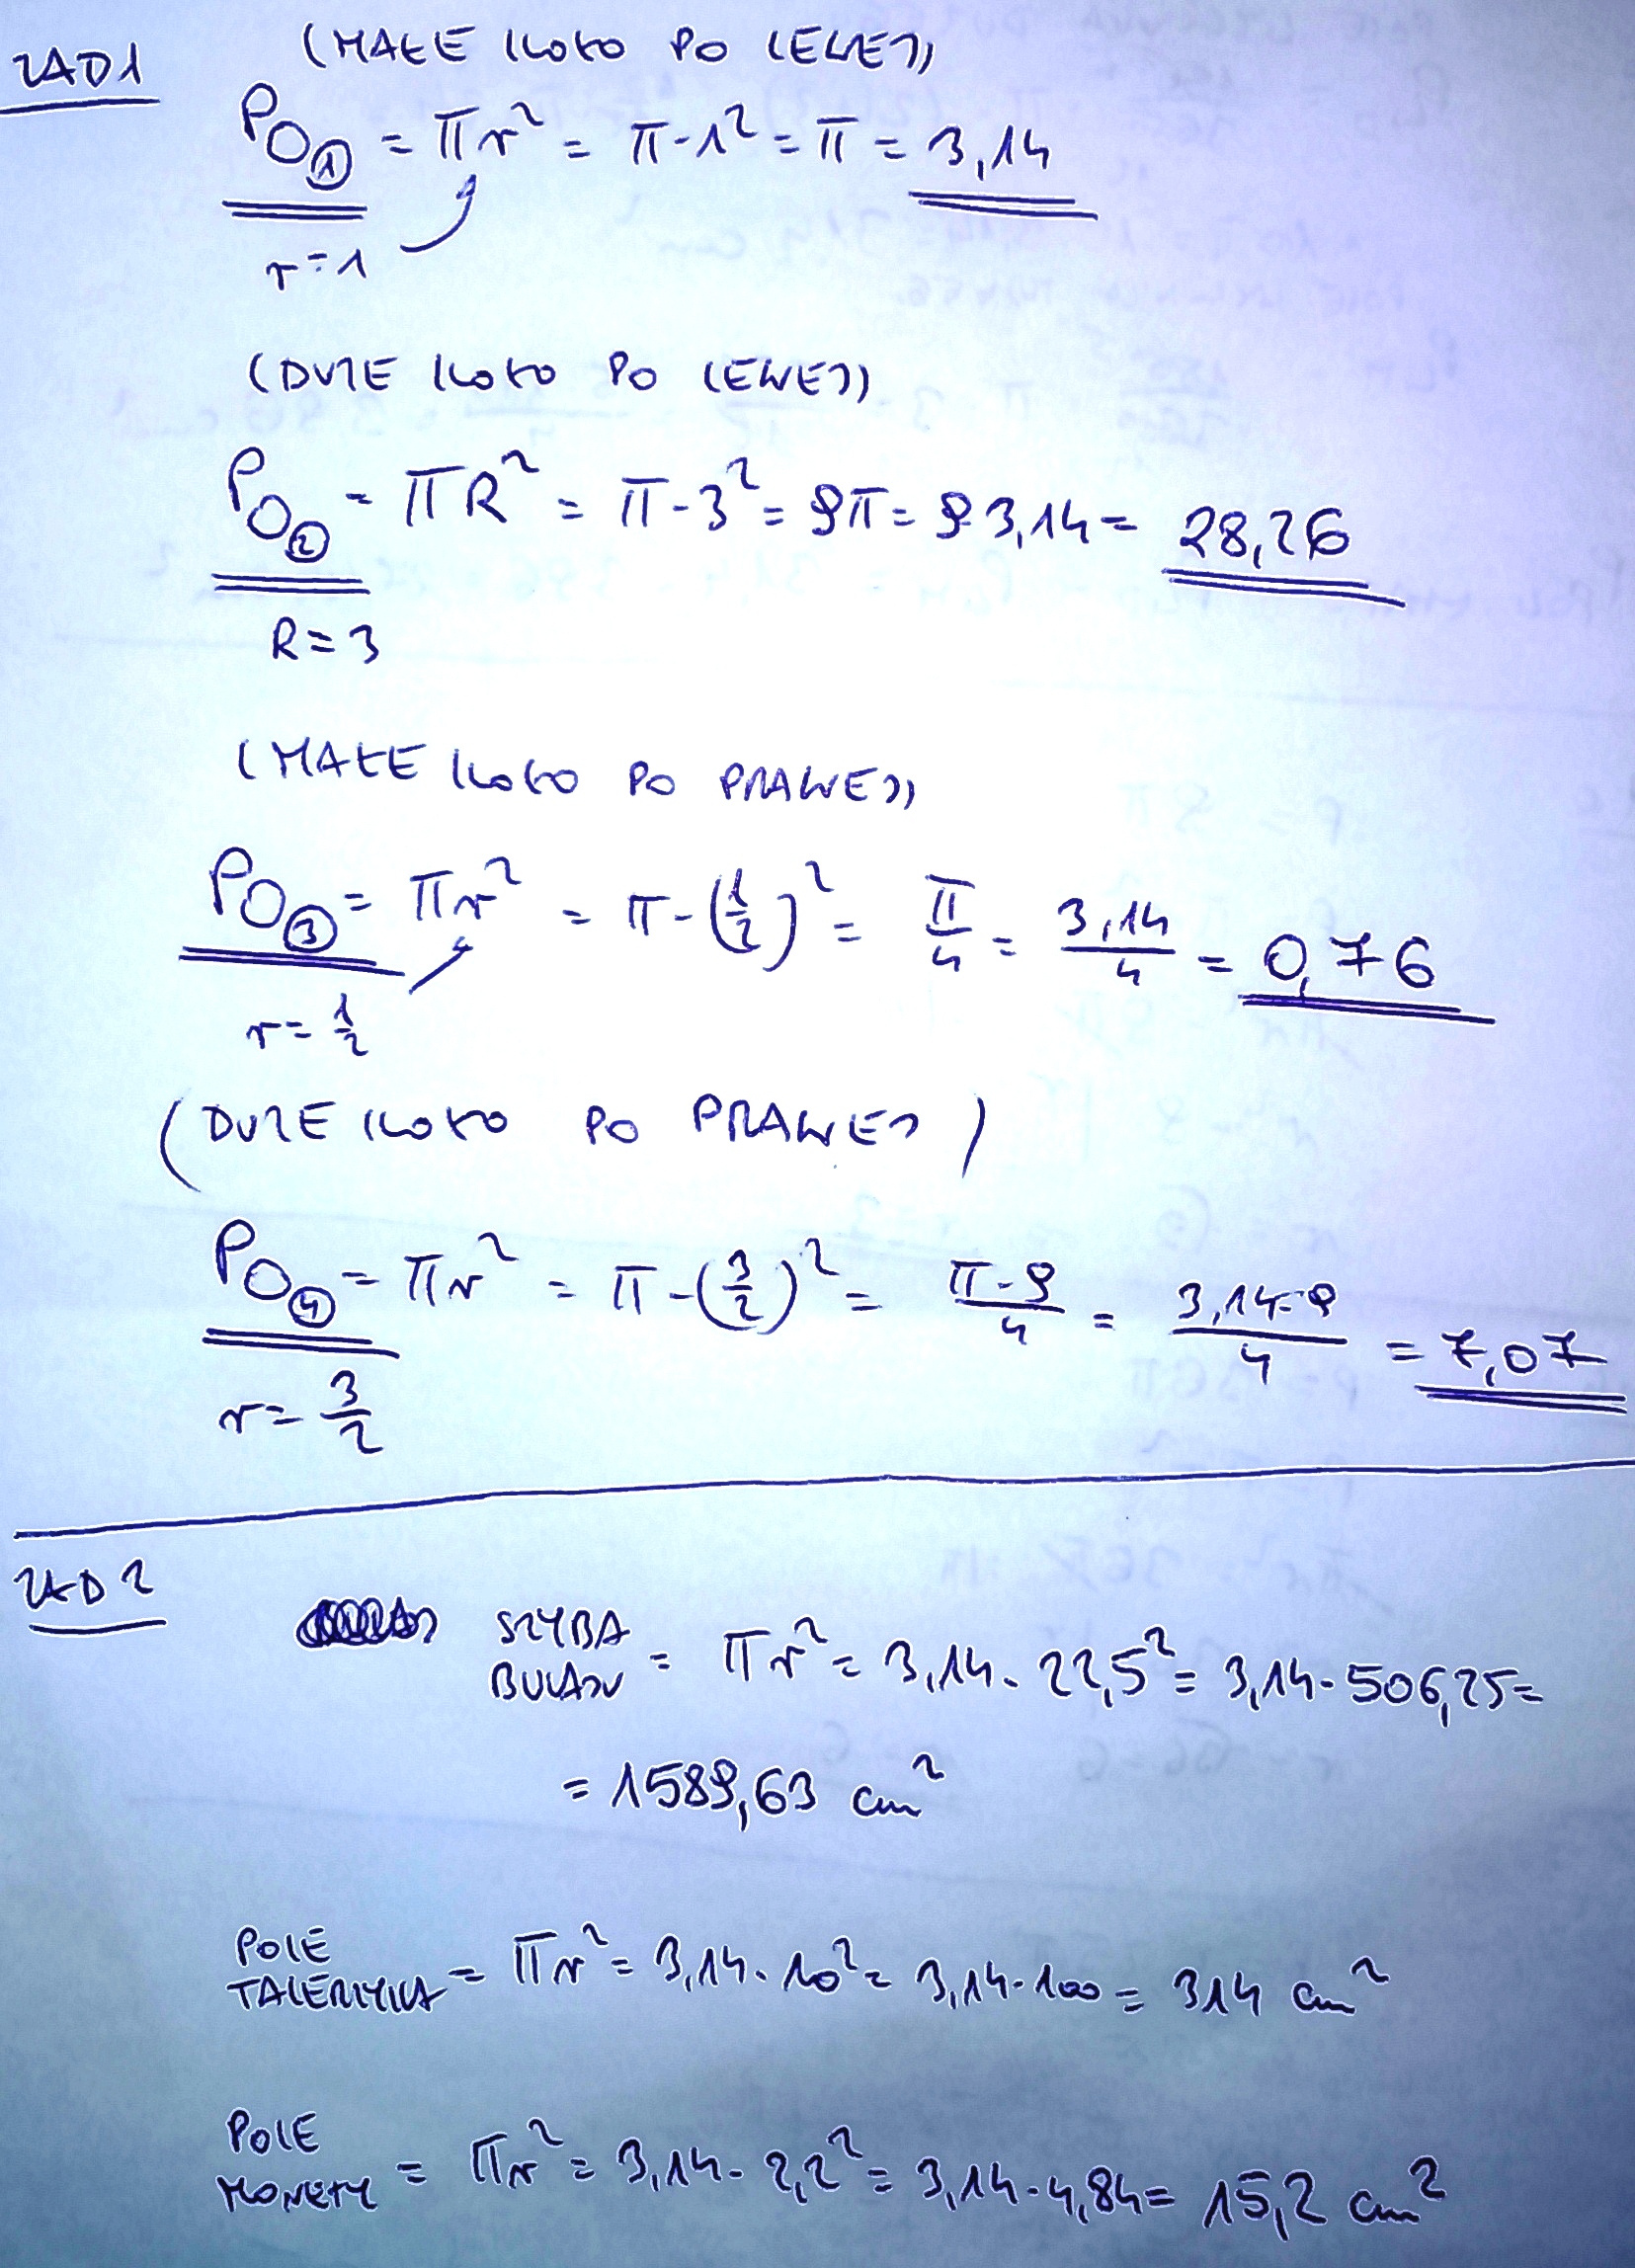 ZAD1 (MAŁE KOŁO PO LEWEJ)
PO① = πr² = π·1² = π = 3,14
r=1
(DUŻE KOŁO PO LEWEJ)
PO② = πR² = π·3² = 9π = 9·3,14 = 28,26
R=3
(MAŁE KOŁO PO PRAWEJ)
PO③ = πr² = π·(1/2)² = π/4 = 3,14/4 = 0,76
r=1/2
(DUŻE KOŁO PO PRAWEJ)
PO④ = πr² = π·(3/2)² = π·9/4 = 3,14·9/4 = 7,07
r=3/2
ZAD2
SZYBA BULAJU = πr² = 3,14·22,5² = 3,14·506,25 =
= 1589,63 cm²
POLE TALERZYKA = πr² = 3,14·10² = 3,14·100 = 314 cm²
POLE MONETY = πr² = 3,14·2,2² = 3,14·4,84 = 15,2 cm²